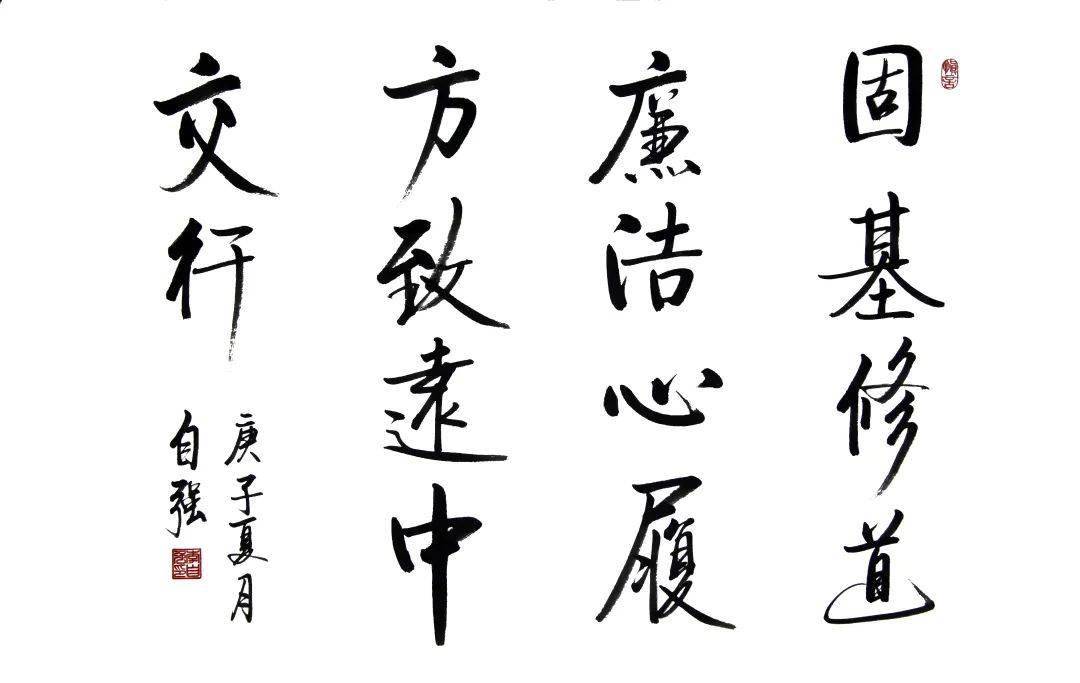 固基修道
廉洁心履
方致遠中
交行
庚子夏月
自强